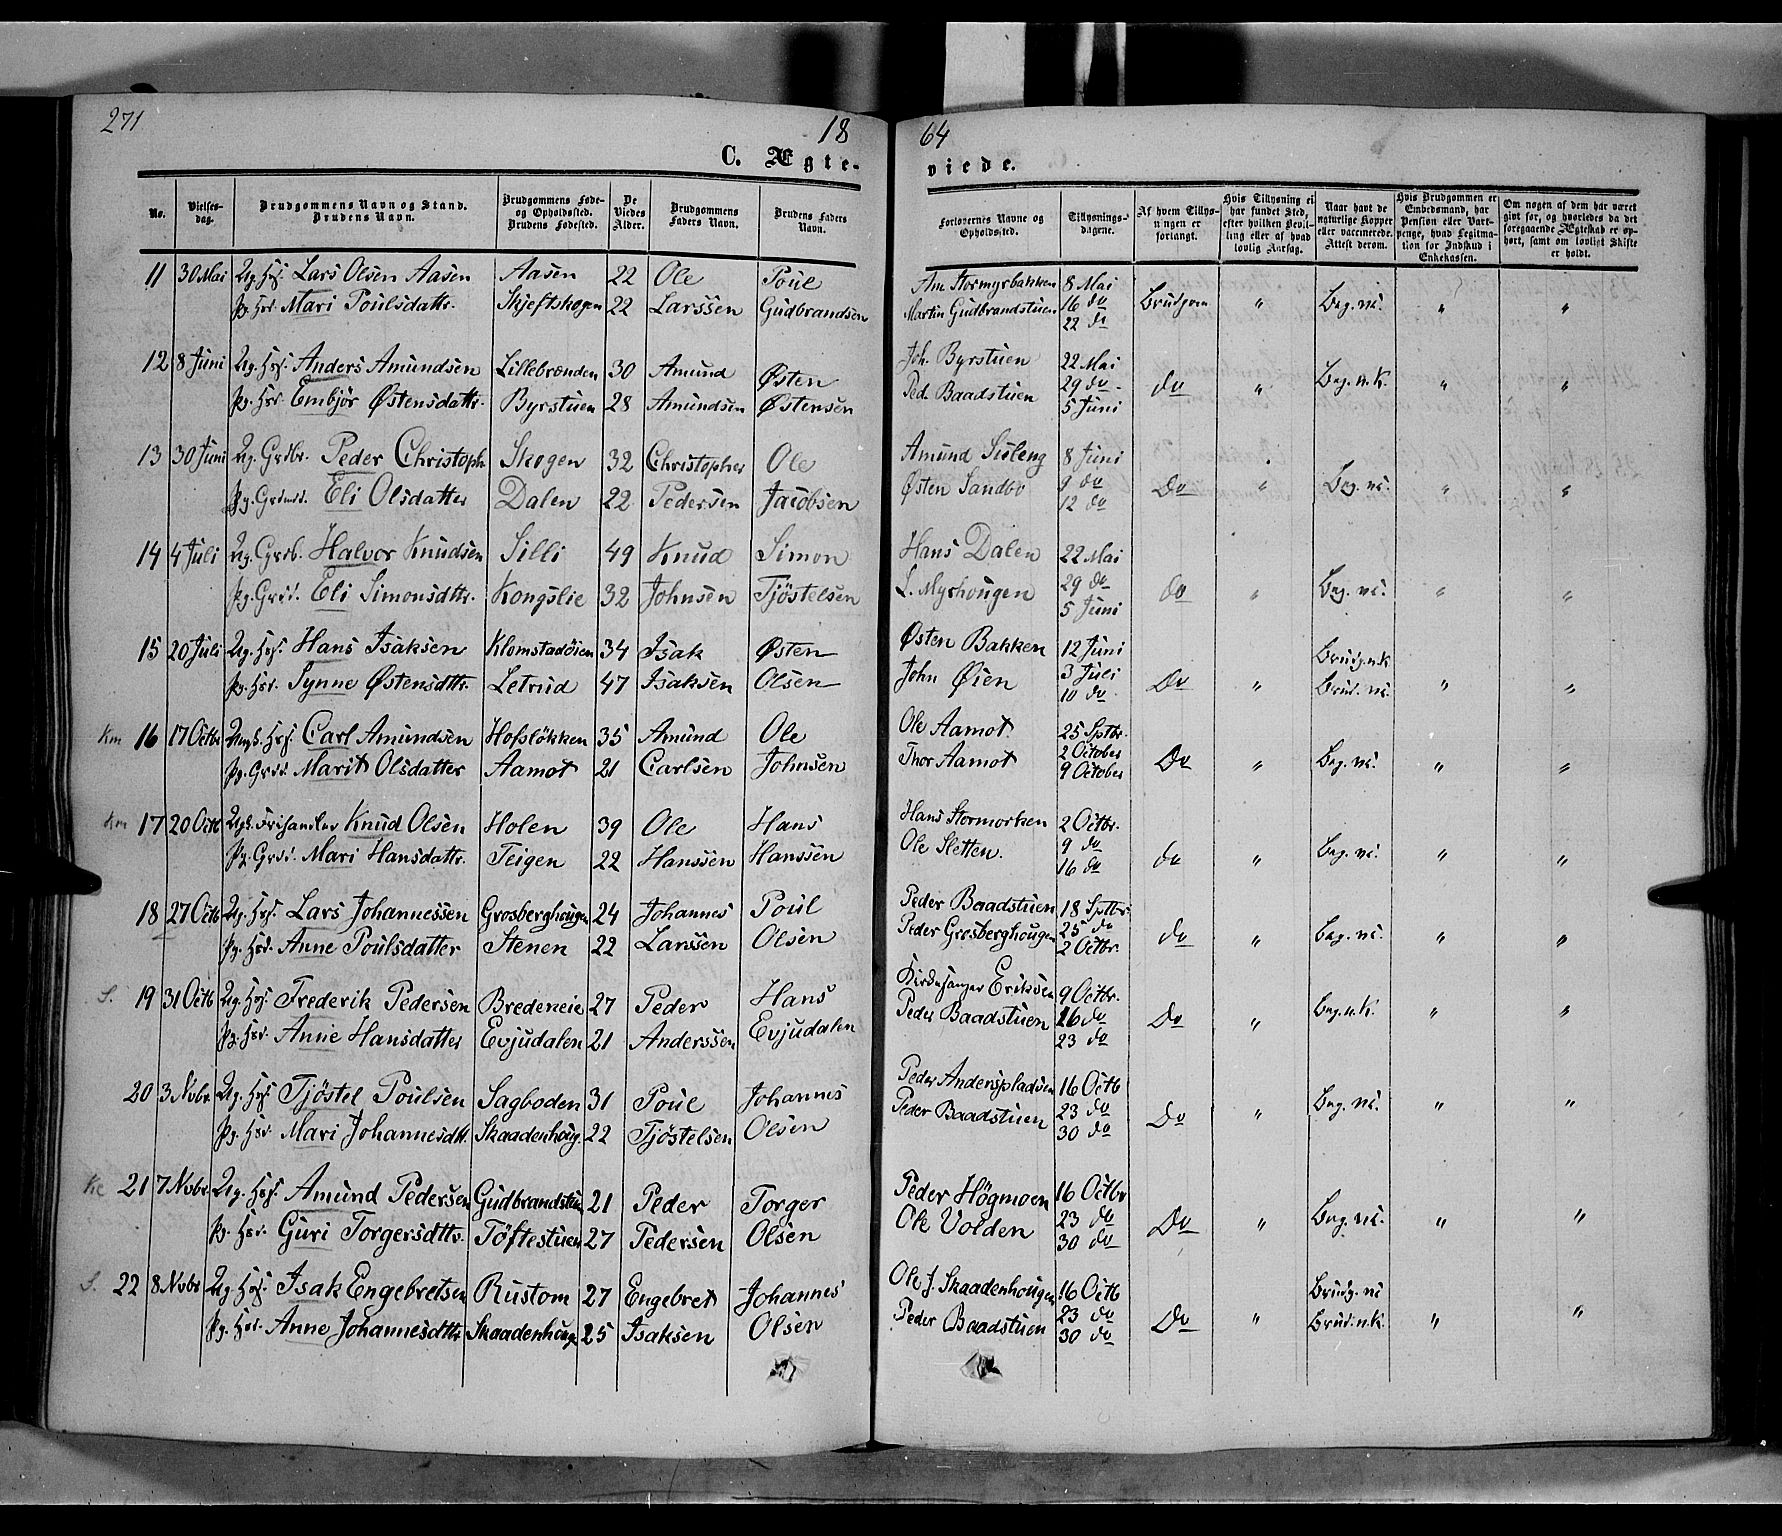 271
18
64
C. Ægte-
viede.
No.
Vielses-
dag.
Brudgommens Navn og Stand.
Brudens Navn.
Brudgommens Føde-
og Opholdssted.
Brudens Fødested.
De
Viedes
Alder.
Brudgommens
Faders Navn.
Brudens Faders
Navn.
Forlovernes Navne og
Opholdssted.
Tillysnings-
dagene.
Af hvem Tillys-
ningen er
forlangt.
Hvis Tillysning ei
har fundet Sted,
efter hvilken Bevil-
ling eller af hvad
lovlig Aarsag.
Naar havt de
naturlige Kopper
eller vaccinerede.
Attest derom.
Hvis Brudgommen er
Embedsmand, har
Pension eller Vart-
penge, hvad Legitima-
tion for Indskud i
Enkekassen.
Om nogen af dem har været
gift før, og hvorledes da det
foregaaende Ægteskab er op-
hørt, samt om lovligt Skifte
er holdt.
11 30 Mai Ug. Hsf. Lars Olsen Aasen Aasen 22 Ole Poul Am Stormyrbakken 8 Mai
Pg. Hsr. Mari Poulsdattr. Skjeftskogen 22 Larssen Gudbrandsen Martin Gudbrandstuen 16 do Brudgom " Beg. vc. " "
22 do
12 8 Juni Ug. Hsf. Anders Amundsen Lillebrænden 30 Amund Østen Joh. Byrstuen 22 Mai
Pg. Hsr Embjør Østensdattr. Byrstuen 28 Amundsen Østensen Ped. Baadstuen 29 do do " Beg. n.K. " "
5 Juni
13 30 Juni Ug. Grdbr. Peder Christoph. Skogen 32 Christopher Ole Amund Sisleng 8 Juni
Pg. Grdmd. Eli Olsdatter Dalen 22 Pedersen Jacobsen Østen Sandbo 9 do Do " Beg. vc. " "
12 do
14 4 Juli Ug. Grdb. Halvor Knudsen Silli 49 Knud Simon Hans Dalen 22 Mai
Pg. Grdd. Eli Simonsdttr. Kongslie 32 Johnsen Tjøstelsen L. Myrhougen 29 do do " Beg. vc. " "
5 Juni
15 20 Juli Ug. Hsf. Hans Isaksen Klomstadøien 34 Isak Østen Østen Bakken 12 Juni Brudg. n.k
Pg. Hsr. Synne Østensdttr. Letrud 47 Isaksen Olsen John Øien 3 Juli Do " Brud. vc. " "
10 do
Km 16 17 Octbr Ungk. Hsf. Carl Amundsen Hofsløkken 35 Amund Ole Ole Aamot 25 Sptbr.
Pg. Grdd. Marit Olsdatter Aamot 21 Carlsen Johnsen Thor Aamot 2 October Do " Beg. vc. " "
9 October
Km 17 20 Octb Ugk. Knud Olsen Holen 39 Ole Hans Hans Stormorken 2 Octbr.
Pg. Grdd. Mari Hansdattr. Teigen 22 Hanssen Hanssen Ole Sletten. 9 do do " Beg. vc. " "
16 do
18 27 Octb Ug. Hsf. Lars Johannessen Grosberghougen 24 Johannes Poul Peder Baadstuen 18 Sptbr.
Pg. Hsd. Anne Poulsdatter Stenen 22 Larssen Olsen Peder Grosberghougen 25 do do " Beg. vc. " "
2 Octbr.
S. 19 31 Octb Ug. Hsf. Frederik Pedersen Bredeneie 27 Peder Hans Kirkesanger Eriksen 9 Octbr.
Pg. Hsr. Anne Hansdatter Evjudalen 21 Anderssen Evjudalen Peder Baadstuen 16 do Do " Beg. n.K. " "
23 do
20 3 Nvbr. Ug. Hsf. Tjøstel Poulsen Sagboden 31 Poul Johannes Peder Anderspladsen 16 Octb
Pg. Hsr. Mari Johannesdtt. Skaadenhoug. 22 Tjøstelsen Olsen Peder Baadstuen 23 do Do " Beg. vc. " "
30 do
Kc 21 7 Nvbr. Ug. Hsf. Amund Pedersen Gudbrandstuen 21 Peder Torger Peder Högmoen 16 Octbr
Pg. Hsr. Guri Torgersdttr. Töftestuen 27 Pedersen Olsen Ole Volden 23 do Do " Beg. vc. " "
30 do
S. 22 8 Nvbr Ug. Hsf. Isak Engebretsen Rustom 27 Engebret Johannes Ole J. Skaadenhougen 16 Octb Brudg. vc
Pg. Hsr. Anne Johannesdttr Skaadenhoug 25 Isaksen Olsen Peder Baadstuen 23 do Do " Brud. n.k. " "
30 do